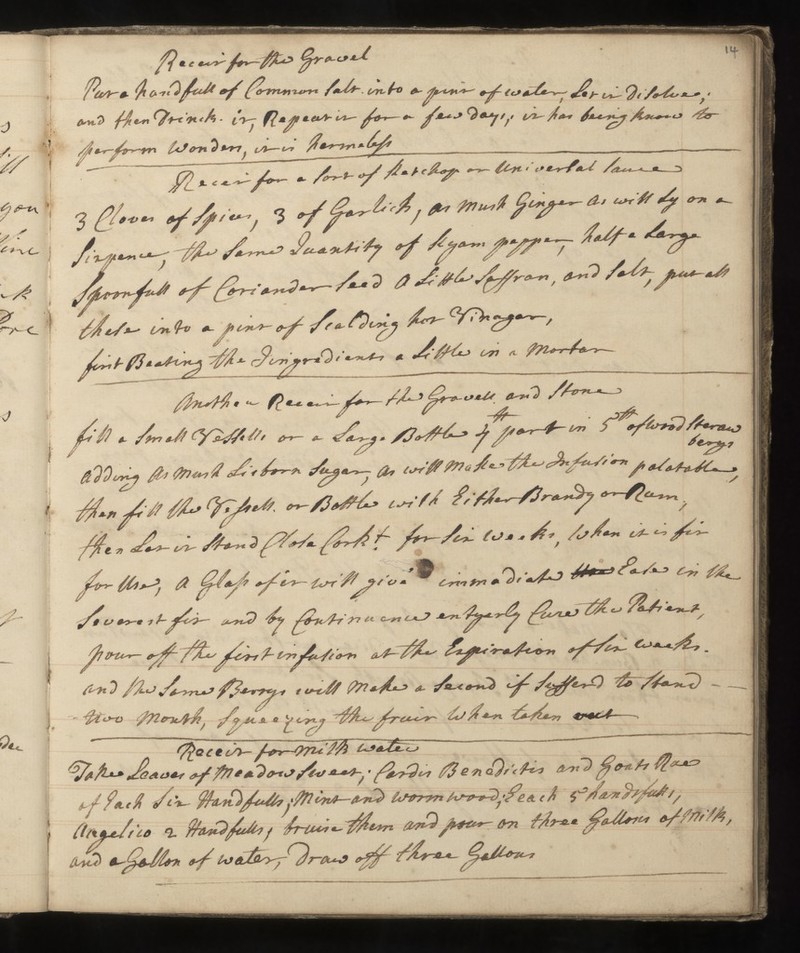 14
Receit for the Gravel
Put a handfull of Common salt into a pint of water, Let it disolve;
and then Drinck it, Repeat it for a few days, it has being know to
perform wonders, it is harmeless
Receit for a sort of Ketchop or Universal Sauce
3 Cloves of Spices, 3 of Garlick, as mush Ginger as will Ly on a
Sixpence, the Same Quantity of Kyam pepper, half a Large
Spoonfull of Coriander Seed a Little Saffran, and Salt, put all
these into a pint of Scalding hot Vinagar,
first Beating the Iingredients a Little in a Mortar
Another Receit for the Gravell and Stone
fill a Small Vessell or a Large Bottle 4th part in 5th of wood Straw
berys
adding as mush Lisborn Sugar, as will make the Infusion palatable,
then fill the Vessell or Bottle with Either Brandy or Rum,
then Let it Stand Close Corkt for Six weeks, when it is fit
for Use, a Glass of it will give immediate Ease in the
Severest fit and by Continuence entyerly Cure the Patient,
pour off the first infusion at the Expiration of Six weeks.
and the Same Berrys will make a Second if Suffer'd to Stand - -
two Month, Squeezing the fruit when taken out
Receit for milk water
Take Leaves of meadow Sweet, Cardis Benedictis and Goats Rue
of Each Six Handfulls; Mint and wormwood, Eeach 5 handsfulls,
Angelico 2 Handfulls; bruise them and pour on three Gallons of Milk,
and a Gallon of water, Draw off three Gallons